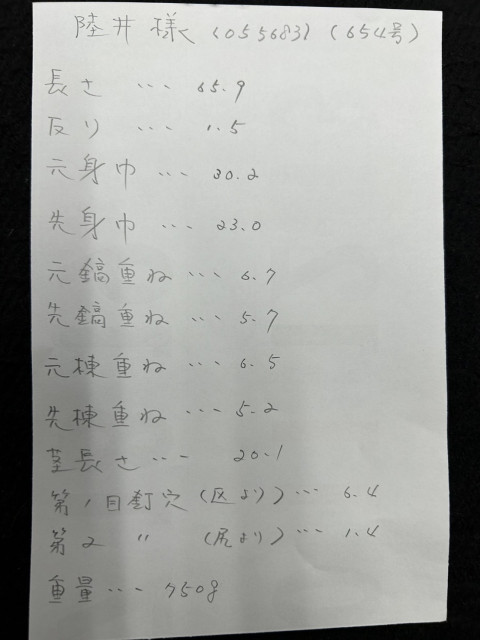 陸井様 (055683) (654号)
長さ … 65.9
反り … 1.5
元身巾 … 30.2
先身巾 … 23.0
元鎬重ね … 6.7
先鎬重ね … 5.7
元棟重ね … 6.5
先棟重ね … 5.2
茎長さ … 20.1
第1目釘穴 (区より) … 6.4
第2 〃 (尻より) … 1.4
重量 … 750g